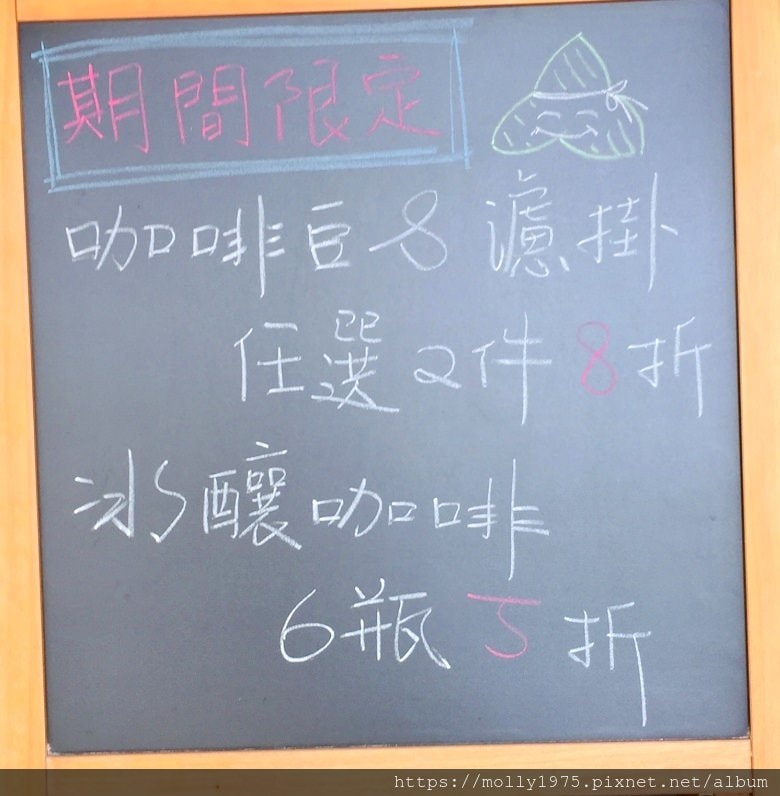 期間限定
咖啡豆&濾掛
任選2件8折
冰釀咖啡
6瓶5折
https://molly1975.pixnet.net/album